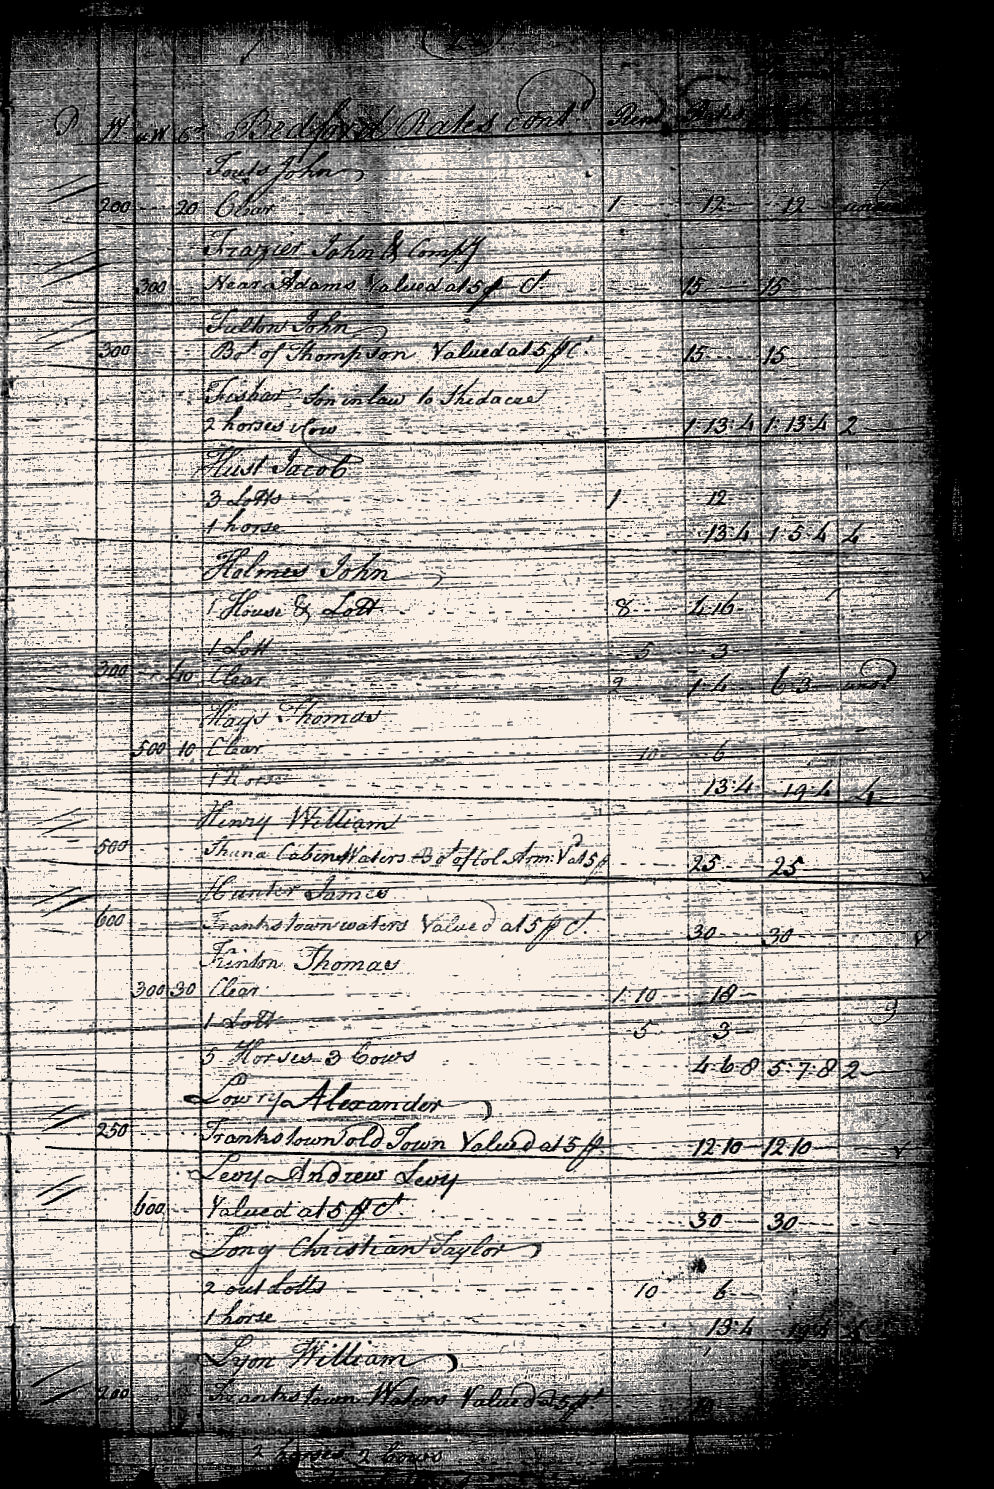 P W uW Cr Bedford Rates cont'd Rent Rates
Fouts John
200 20 Clear 1 12 12
Frazier John & Comp'y
300 Near Adams Valued at 5 p C't 15 15
Fulton John
300 Bo't of Thompson Valued at 5 p C't 15 15
Fishar Son in law to
2 horses 1 Cow 1 13 4 1 13 4 2
Hust Jacob
3 Lotts 1 12
1 horse 13 4 1 5 4 4
Holmes John
1 House & Lott 8 4 16
1 Lott 5 3
300 40 Clear 2 1 4 6 3
Hays Thomas
500 10 Clear 10 6
1 horse 13 4 19 4 4
Henry William
500 Cabin Waters Bo't of Col Arm. V'd at 5 p 25 25
Hunter James
600 Frankstown waters Valued at 5 p C't 30 30
Kinton Thomas
300 30 Clear 1 10 18
1 Lott 5 3
5 Horses 3 Cows 4 6 8 5 7 8 2
Lowry Alexander
250 Frankstown old Town Valued at 5 p 12 10 12 10
Levy Andrew Levy
600 Valued at 5 p C't 30 30
Long Christian Taylor
2 out Lotts 10 6
1 horse 13 4 19 4 4
Lyon William
200 Frankstown Waters Valued at 5 p C't 10
2 horses 2 Cows